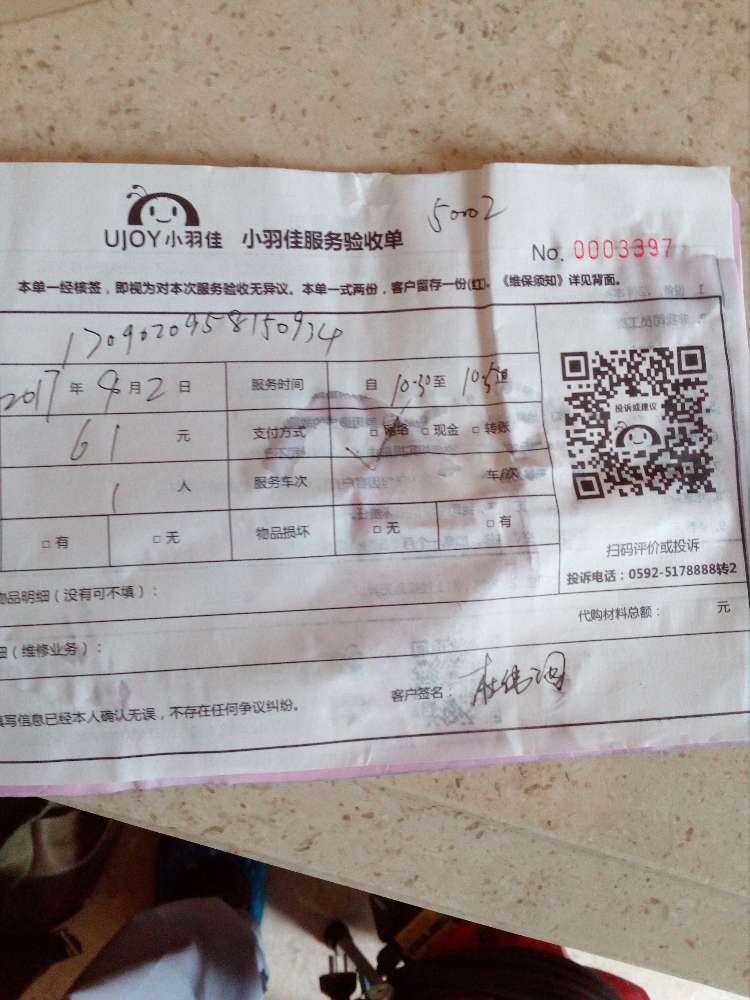 50002
UJOY小羽佳 小羽佳服务验收单
No. 0003397
本单一经核签，即视为对本次服务验收无异议。本单一式两份，客户留存一份(红)。《维保须知》详见背面。
1709020958150934
2017 年 9 月 2 日 服务时间 自 10:30 至
61 元 支付方式 □ 网络 □ 现金 □ 转账
1 人 服务车次 车/次
□ 有 □ 无 物品损坏 □ 无 □ 有
投诉或建议
扫码评价或投诉
投诉电话：0592-5178888转2
物品明细（没有可不填）：
代购材料总额： 元
细（维修业务）：
填写信息已经本人确认无误，不存在任何争议纠纷。 客户签名：